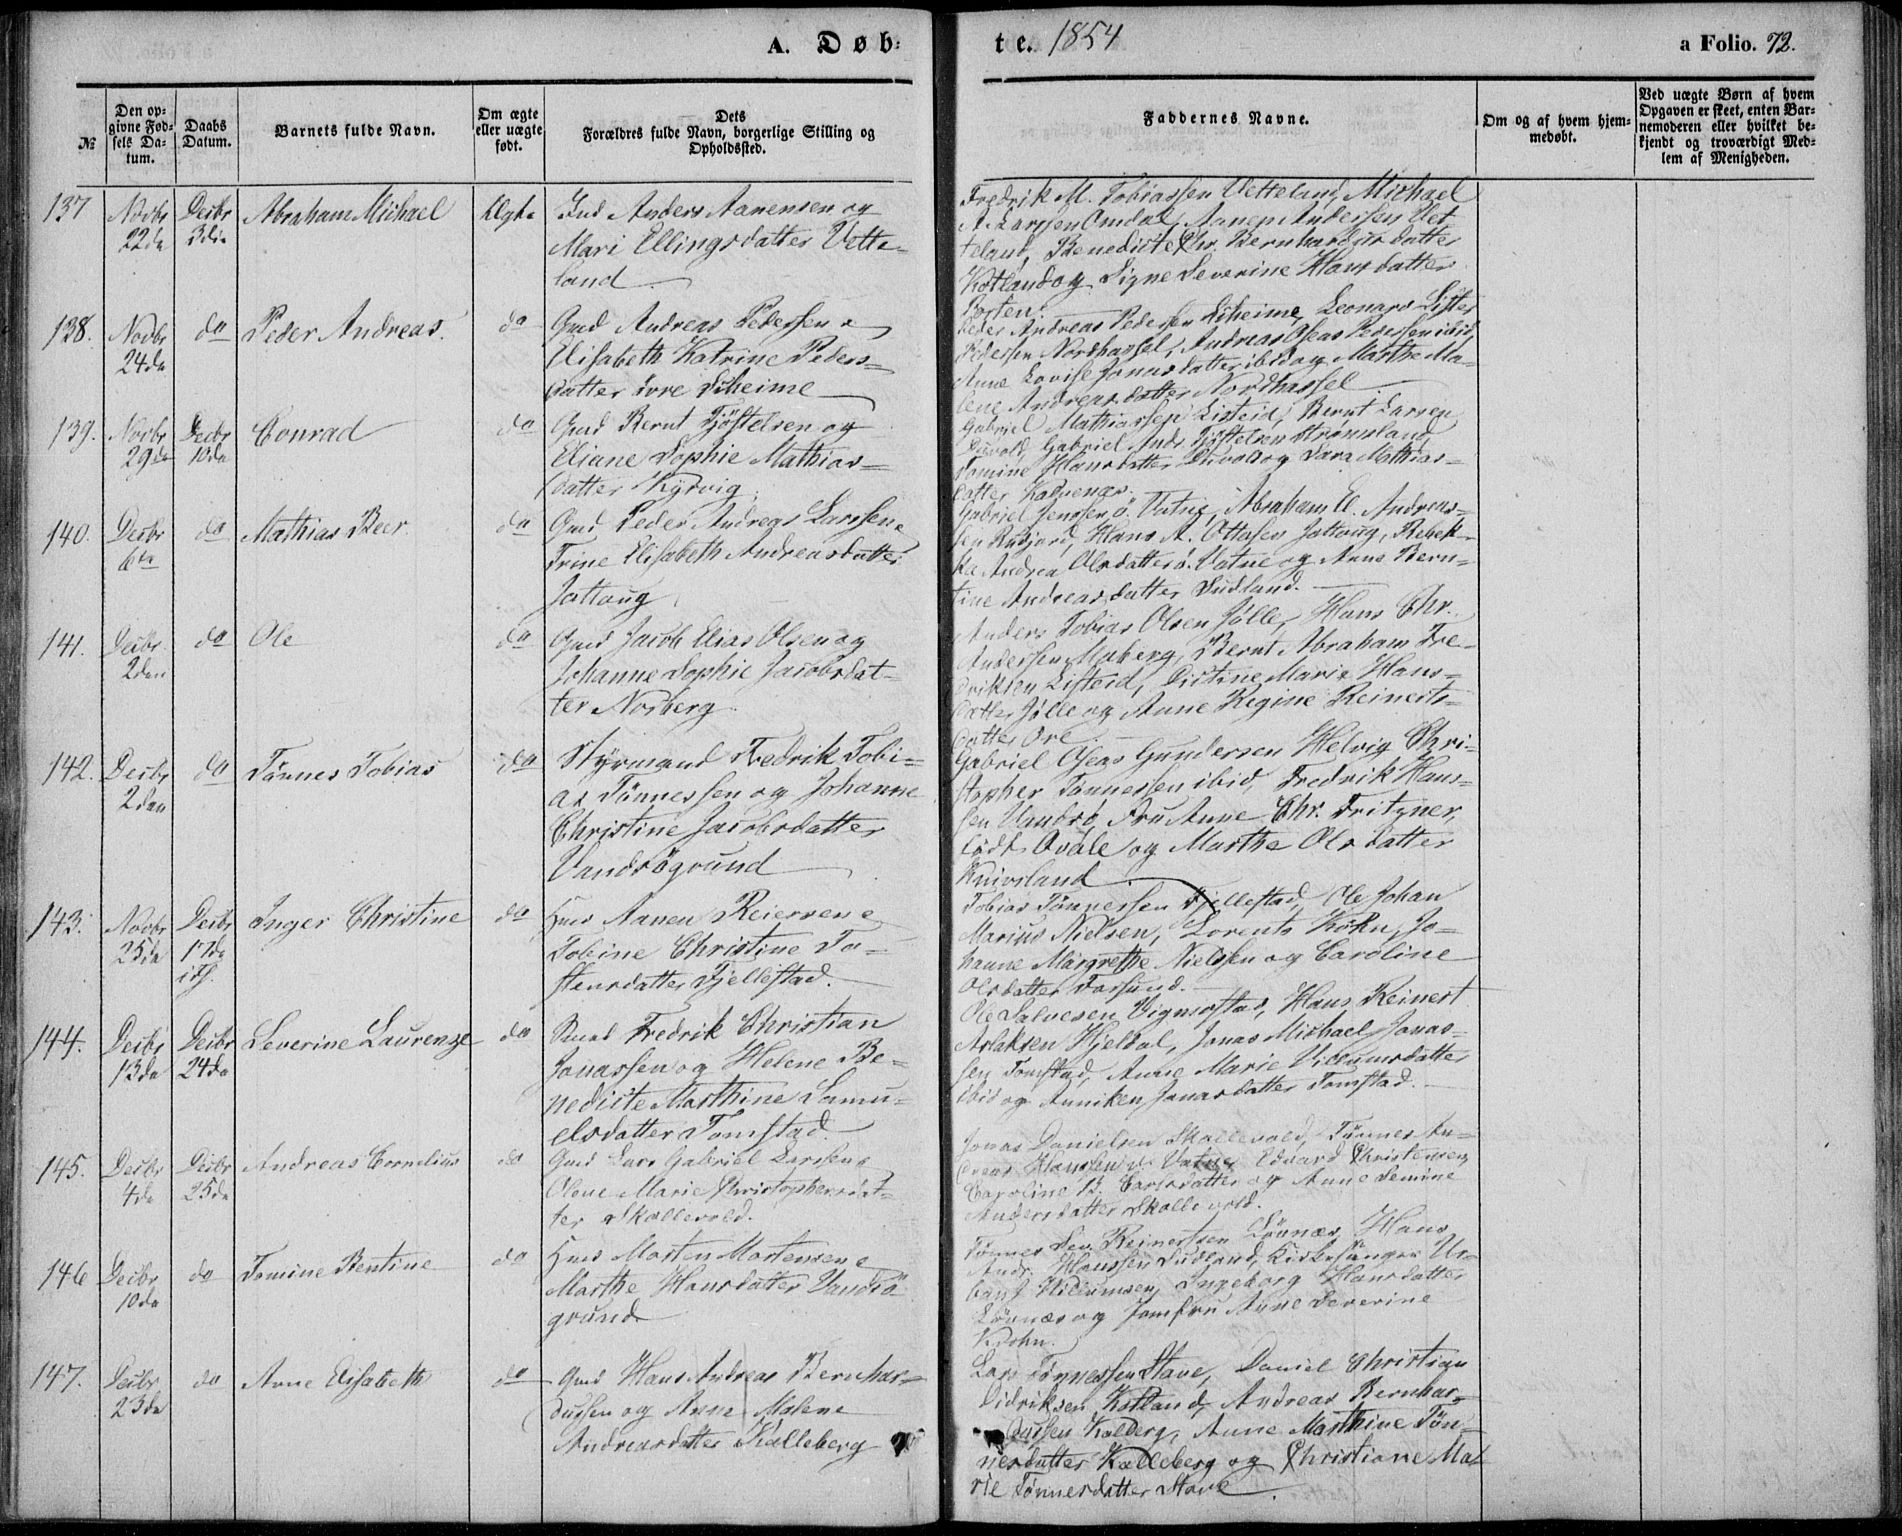 A. Døb-
te. 1854
a Folio. 72.
№
Den op-
givne Fød-
sels Da-
tum.
Daabs
Datum.
Barnets fulde Navn.
Om ægte
eller uægte
født.
Dets
Forældres fulde Navn, borgerlige Stilling og
Opholdssted.
Faddernes Navne.
Om og af hvem hjem-
medøbt.
Ved uægte Børn af hvem
Opgaven er skeet, enten Bar-
nemoderen eller hvilket be-
kjendt og troværdigt Med-
lem af Menigheden.
137
Novbr
22de
Decbr
3die
Abraham Michael
Ægte
Anders Aanensen og
Mari Ellingsdatter Vette-
land
Fredrik M. Tobiassen Vetteland, Michael
A. Larssen Omdal, Aanen Andersen Vet
teland, Benedicte Chr. Bernhardusdatter
Kotland og Signe Severine Hansdatter
138.
Novbr
24de
do
Peder Andreas.
do
Gmd Andreas Pedersen &
Elisabeth Katrine Peders-
datter Øvre Skeime
Peder Andreas Pedersen Skeime, Leonard
Pedersen Nordhassel, Andreas Oseas Pedersen ibid,
Anne Lovise Jonasdatter ibid og Marthe Ma-
lene Andreasdatter Nordhassel
139.
Novbr
29de
Decbr
10de
Conrad
do
Gmd Bernt Tjøstelsen og
Eliane Sophie Mathias-
datter
Gabriel Mathiassen Listeid, Bernt Larsen
Duvold, Gabriel Andr. Tjøstelsen Strømsland,
Tomine Hansdatter Duvold og Sara Mathias-
datter
140.
Decbr
6te
do
Mathias Peer.
do
Gmd Peder Andreas Larssen &
Trine Elisabeth Andreasdatter
Jøttoug
Gabriel Jenssen ø. Vatne, Abraham E. Andreas-
sen Rudjord, Hans A. Ottosen Jøttoug, Rebek-
ka Andrea Olsdatter ø. Vatne og Anne Bern-
tine Andreasdatter Sudland.
141.
Decbr
2den
do
Ole
do
Gmd Jacob Elias Olsen og
Johanne Sophie Jacobsdat-
ter Nosberg
Anders Tobias Olsen Jølle, Hans Chr.
Andersen Maberg, Bernt Abraham Fre-
driksen Listeid, Distine Marie Hans-
datter Jølle og Anne Regine Reinerts-
datter Ore.
142.
Decbr
2den
do
Tønnes Tobias
do
Styrmand Fredrik Tobi-
as Tønnessen og Johanne
Christine Jacobsdatter
Vandsøgrund
Gabriel Oseas Gundersen Helvig Chri-
stopher Tønnessen ibid, Fredrik Hans-
sen Vandsø, Fru Anne Chr. Fritzner,
født Ovale og Marthe Olsdatter
Knivsland
143.
Novbr
25de
Decbr
17de
Inger Christine
do
Hmd Aanen Reiersen &
Tobine Christine To-
stensdatter Fjellestad.
Tobias Tønnessen Fjellestad, Ole Johan
Marius Nielsen, Lorents Kohn, Jo-
hanne Margrethe Nielssen og Caroline
Olsdatter Farsund.
144.
Decbr
13de
Decbr
24de
Severine Laurenze
do
Fredrik Christian
Jonassen og Helene Be-
nedicte Marthine Samu-
elsdatter Tomstad.
Ole Salvesen Vigmostad, Hans Reinert
Aslaksen Hjeldal, Jonas Michael Jonas-
sen Tomstad, Anne Marie Villumsdatter
ibid og Anniken Jonasdatter Tomstad.
145.
Decbr
4de
Decbr
25de
Andreas Cornelius
do
Gmd Lars Gabriel Larssen &
Olene Marie Christophersdat-
ter Skallevold.
Jonas Danielsen Skallevold, Tønnes An-
dreas Hanssen v. Vatne, Edvard Christensen,
Caroline B. Larsdatter og Anne Semine
Andersdatter Skallevold.
146
Decbr
10de
do
Tomine Bentine
do
Hmd Morten Mortensen &
Marthe Hansdatter Vandsø
grund
Tønnes Sev. Reinertsen Lønnæs, Hans
Andr. Hanssen Sudland, Kirkesanger Ur-
Villumsen, Ingeborg Hansdatter
Lønnæs og Jomfru Anne Severine
Krohn.
147.
Decbr
23de
do
Anne Elisabeth
do
Gmd Hans Andreas Bernhar-
dussen og Anne Malene
Andreasdatter Kalleberg
Lars Tønnessen Stave, Daniel Christian
Didriksen Kotland, Andreas Bernhar-
dussen Kalberg, Anne Marthine Tøn-
nesdatter Kalleberg og Christiane Ma-
rie Tønnesdatter Stave